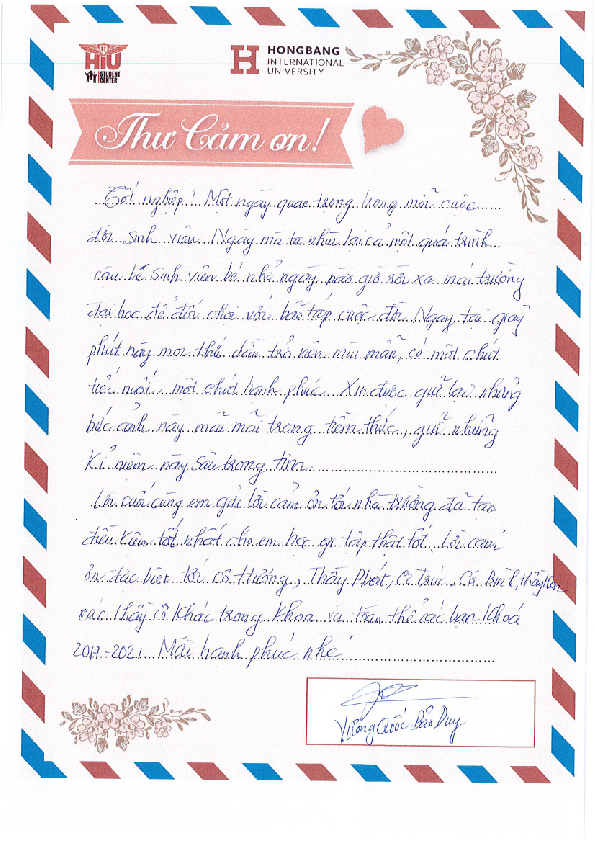 HIU
HONGBANG
INTERNATIONAL
UNIVERSITY
Thư Cảm ơn!
Tốt nghiệp! Một ngày quan trọng trong mỗi cuộc
đời sinh viên. Ngày mà ta nhìn lại cả một quá trình
cậu bé sinh viên bé nhỏ ngày nào giờ rời xa mái trường
đại học để đối chọi với bão táp cuộc đời. Ngay tại giây
phút này mọi thứ đều trở nên viên mãn, có một chút
tiếc nuối, một chút hạnh phúc. Xin được giữ lại những
bức ảnh này mãi mãi trong tiềm thức, giữ những
kỉ niệm này sâu trong tim.
Lời cuối cùng em gửi lời cảm ơn tới nhà trường đã tạo
điều kiện tốt nhất cho em học tập thật tốt. Lời cảm
ơn đặc biệt tới cô Hương, Thầy Phát, Cô
các thầy cô khác trong khoa và toàn thể các bạn khoá
2017-2021. Mãi hạnh phúc nhé
Vương Quốc Bảo Duy